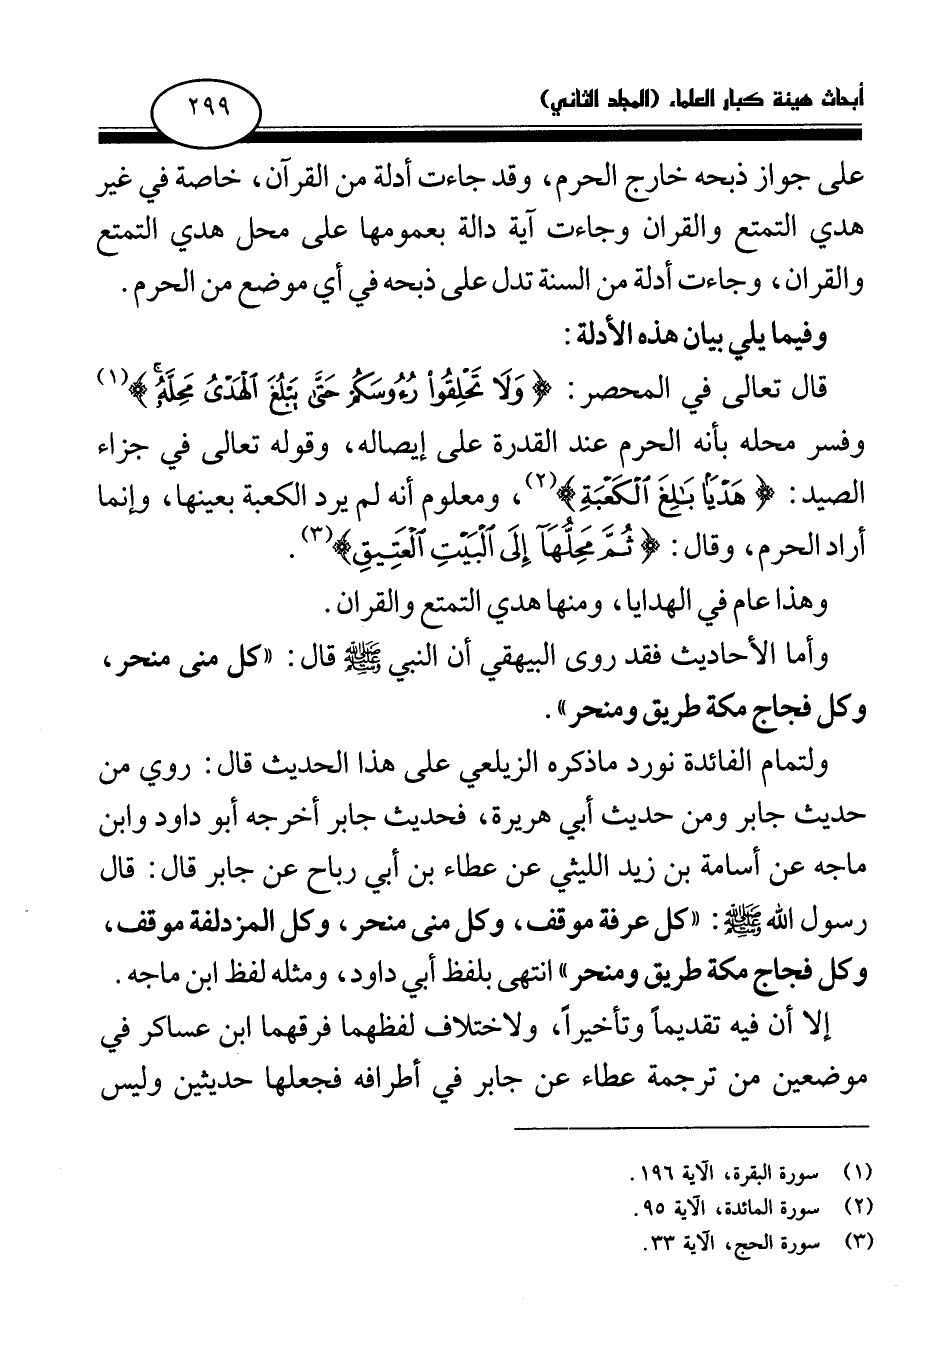 أبحاث هيئة كبار العلماء (المجلد الثاني)
٢٩٩
على جواز ذبحه خارج الحرم، وقد جاءت أدلة من القرآن، خاصة في غير
هدي التمتع والقران وجاءت آية دالة بعمومها على محل هدي التمتع
والقران، وجاءت أدلة من السنة تدل على ذبحه في أي موضع من الحرم.
وفيما يلي بيان هذه الأدلة:
قال تعالى في المحصر: ﴿وَلَا تَحْلِقُوا۟ رُءُوسَكُمْ حَتَّىٰ يَبْلُغَ ٱلْهَدْىُ مَحِلَّهُۥ ۚ﴾(١)
وفسر محله بأنه الحرم عند القدرة على إيصاله، وقوله تعالى في جزاء
الصيد: ﴿هَدْيًۢا بَـٰلِغَ ٱلْكَعْبَةِ﴾(٢)، ومعلوم أنه لم يرد الكعبة بعينها، وإنما
أراد الحرم، وقال: ﴿ثُمَّ مَحِلُّهَآ إِلَى ٱلْبَيْتِ ٱلْعَتِيقِ﴾(٣).
وهذا عام في الهدايا، ومنها هدي التمتع والقران.
وأما الأحاديث فقد روى البيهقي أن النبي ﷺ قال: «كل منى منحر،
وكل فجاج مكة طريق ومنحر».
ولتمام الفائدة نورد ماذكره الزيلعي على هذا الحديث قال: روي من
حديث جابر ومن حديث أبي هريرة، فحديث جابر أخرجه أبو داود وابن
ماجه عن أسامة بن زيد الليثي عن عطاء بن أبي رباح عن جابر قال: قال
رسول الله ﷺ: «كل عرفة موقف، وكل منى منحر، وكل المزدلفة موقف،
وكل فجاج مكة طريق ومنحر» انتهى بلفظ أبي داود، ومثله لفظ ابن ماجه.
إلا أن فيه تقديماً وتأخيراً، ولاختلاف لفظهما فرقهما ابن عساكر في
موضعين من ترجمة عطاء عن جابر في أطرافه فجعلها حديثين وليس
(١) سورة البقرة، الآية ١٩٦.
(٢) سورة المائدة، الآية ٩٥.
(٣) سورة الحج، الآية ٣٣.